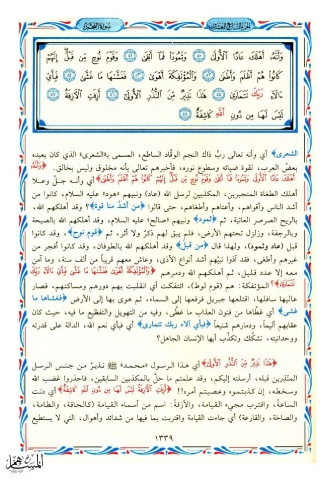 سورة النجم
وَأَنَّهُ أَهْلَكَ عَادًا الْأُولَىٰ ﴿٥٠﴾ وَثَمُودَا فَمَا أَبْقَىٰ ﴿٥١﴾ وَقَوْمَ نُوحٍ مِنْ قَبْلُ إِنَّهُمْ
كَانُوا هُمْ أَظْلَمَ وَأَطْغَىٰ ﴿٥٢﴾ وَالْمُؤْتَفِكَةَ أَهْوَىٰ ﴿٥٣﴾ فَغَشَّاهَا مَا غَشَّىٰ ﴿٥٤﴾ فَبِأَيِّ
آلَاءِ رَبِّكَ تَتَمَارَىٰ ﴿٥٥﴾ هَٰذَا نَذِيرٌ مِنَ النُّذُرِ الْأُولَىٰ ﴿٥٦﴾ أَزِفَتِ الْآزِفَةُ ﴿٥٧﴾
لَيْسَ لَهَا مِنْ دُونِ اللَّهِ كَاشِفَةٌ ﴿٥٨﴾
الشعرى﴾ أي وأنه تعالى ربُّ ذاك النجم الوقَّاد الساطع، المسمى بـ«الشعرى» الذي كان يعبده
بعضُ العرب، لقوة ضيائه وسطوع نوره، فأخبرهم تعالى بأنه مخلوق وليس بخالق. ﴿وَأَنَّهُ
أَهْلَكَ عَادًا الْأُولَىٰ وَثَمُودَا فَمَا أَبْقَىٰ وَقَوْمَ نُوحٍ مِنْ قَبْلُ إِنَّهُمْ كَانُوا هُمْ أَظْلَمَ وَأَطْغَىٰ﴾ أي وأنه جل وعلا
أهلك الطغاة المتجبرين، المكذبين لرسل الله (عاد) ونبيهم «هود» عليه السلام، وكانوا من
أشد الناس وأقواهم، وأعتاهم وأطغاهم، حتى قالوا ﴿من أشدُّ منا قوة﴾؟ وقد أهلكهم الله،
بالريح الصرصر العاتية، ثم ﴿ثمود﴾ ونبيهم «صالح» عليه السلام، وقد أهلكهم الله بالصيحة
وبالرجفة، وزلزال تحتهم الأرض، فلم يبق لهم ذكرٌ ولا أثر، ثم ﴿قوم نوح﴾، وقد كانوا
قبل ﴿عاد وثمود﴾، ولهذا قال ﴿من قبل﴾ وقد أهلكهم الله بالطوفان، وقد كانوا أفجر من
غيرهم وأطغى، فقد آذوا نبيَّهم أشد أنواع الأذى، وعاش معهم قريباً من ألف سنة، وما آمن
معه إلا عدد قليل، ثم أهلكهم الله ودمرهم ﴿وَالْمُؤْتَفِكَةَ أَهْوَىٰ فَغَشَّاهَا مَا غَشَّىٰ فَبِأَيِّ آلَاءِ رَبِّكَ
تَتَمَارَىٰ﴾؟ المؤتفكة: هم (قوم لوط)، ائتفكت أي انقلبت بهم دورهم ومساكنهم، فصار
عاليها سافلها، اقتلعها جبريل فرفعها إلى السماء، ثم هوى بها إلى الأرض ﴿فغشاها ما
غشى﴾ أي غطَّاها من فنون العذاب ما غطَّى، وفيه من التهويل والتفظيع ما فيه، حيث كان
عقابهم أليماً، ودمارهم شنيعاً ﴿فبأي آلاء ربك تتمارى﴾ أي فبأي نعم الله، الدالة على قدرته
ووحدانيته، تشكك وتكذّب أيها الإنسان الجاهل؟
﴿هَٰذَا نَذِيرٌ مِنَ النُّذُرِ الْأُولَىٰ﴾ أي هذا الرسول «محمد» ﷺ نذيرٌ من جنس الرسل
المنذرين قبله، أرسلته إليكم، وقد علمتم ما حلَّ بالمكذبين السابقين، فاحذروا غضب الله
وسخطه، إن كذبتموه وعصيتم أمره!! ﴿أَزِفَتِ الْآزِفَةُ لَيْسَ لَهَا مِنْ دُونِ اللَّهِ كَاشِفَةٌ﴾ أي دنت
الساعةُ واقترب مجيء القيامة، والآزفةُ: اسم من أسماء القيامة (كالحاقة، والطامة،
والصاخة، والقارعة) أي جاءت القيامة واقتربت بما فيها من شدائد وأهوال، التي لا يستطيع
١٣٣٩